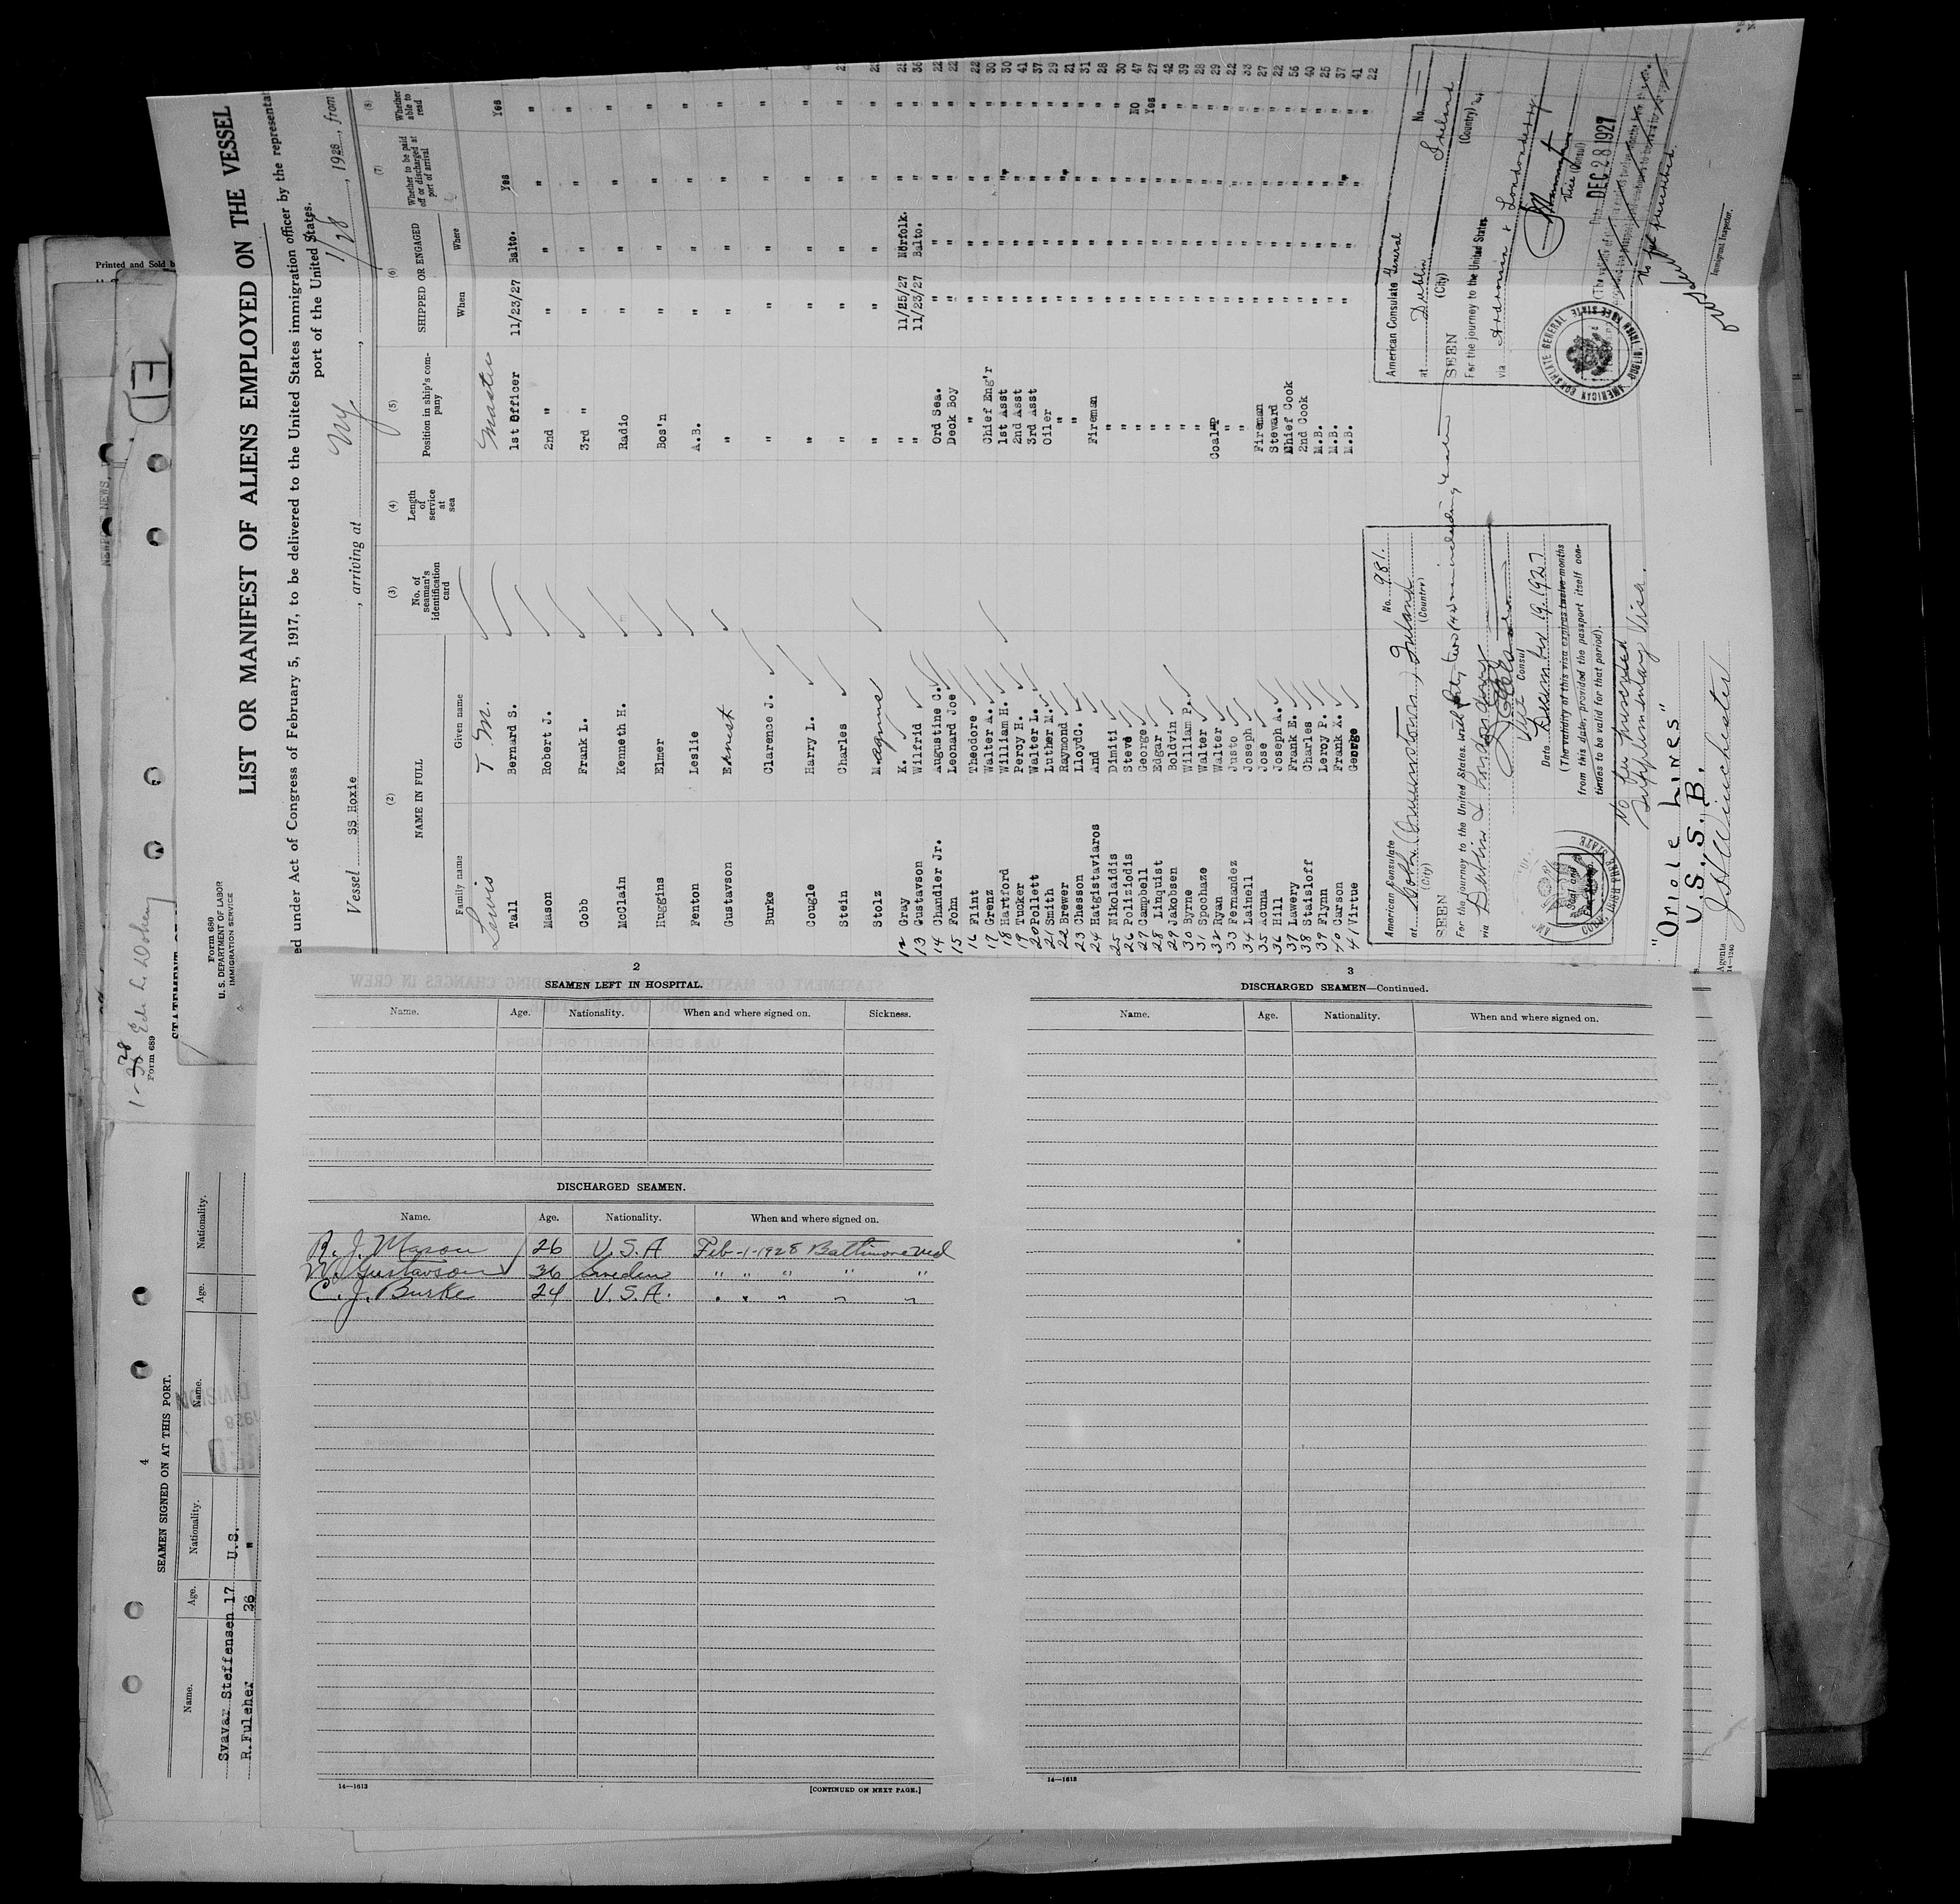 LIST OR MANIFEST OF ALIENS EMPLOYED ON THE VESSEL
ed under Act of Congress of February 5, 1917, to be delivered to the United States immigration officer by the representa
port of the United States.
Vessel SS Hoxie, arriving at NY, 1/28, 1928, from
(2) (3) (4) (5) (6) (7) (8)
NAME IN FULL No. of seaman's identification card Length of service at sea Position in ship's company SHIPPED OR ENGAGED Whether to be paid off or discharged at port of arrival Whether able to read
Family name Given name When Where
Lewis T. M. Master
Tall Bernard S. 1st Officer 11/23/27 Balto. Yes Yes
Mason Robert J. 2nd " " " " "
Cobb Frank L. 3rd " " " " "
McClain Kenneth H. Radio " " " "
Huggins Elmer Bos'n " " " "
Fenton Leslie A.B. " " " "
Gustavson Ernest " " " " "
Burke Clarence J. " " " " "
Cougle Harry L. " " " " "
Stein Charles " " " " "
Stolz Magnus " " " " "
12 Gray K. " 11/25/27 Norfolk. " "
13 Gustavson Wilfrid " 11/23/27 Balto. " " 36
14 Chandler Jr. Augustine C. Ord Sea. " " " " 22
15 Fohn Leonard Joe Deck Boy " " " " 22
16 Flint Theodore " " " " " 22
17 Grenz Walter A. Chief Eng'r " " " " 30
18 Hartford William H. 1st Asst " " " " 30
19 Tucker Percy H. 2nd Asst " " " " 41
20 Pollett Walter L. 3rd Asst " " " " 37
21 Smith Luther M. Oiler " " " " 29
22 Brewer Raymond " " " " " 21
23 Chesson LloydC. " " " " " 31
24 Hatgistaviaros And Fireman " " " " 28
25 Nikolaidis Dimiti " " " " " 30
26 Poliziodis Steve " " " " NO 47
27 Campbell George " " " " Yes 27
28 Linquist Edgar " " " " " 42
29 Jakobsen Boldvin " " " " " 39
30 Byrne William P. " " " " " 28
31 Spochaze Walter " " " " " 29
32 Ryan Walter Coalp " " " " 22
33 Fernandez Justo " " " " " 33
34 Lainell Joseph " " " " " 27
35 Acuna Jose Fireman " " " " 22
36 Hill Joseph A. Steward " " " " 56
37 Lawery Frank E. Chief Cook " " " " 40
38 Staisloff Charles 2nd Cook " " " " 25
39 Flynn Leroy P. M.B. " " " " 37
40 Carson Frank X. M.B. " " " " 41
41 Virtue George M.B. " " " " 22
American Consulate
at Cobh (Queenstown), Ireland No. 981.
(City) (Country)
SEEN
For the journey to the United States. with forty-two (42) men including Master
via Dublin & Londonderry
Vice Consul
Date December 19, 1927
(The validity of this visa expires twelve months
from this date, provided the passport itself continues to be valid for that period).
No fee prescribed
Supplementary Visa.
American Consulate General No.
at Dublin Ireland
(City) (Country)
SEEN
For the journey to the United States
via Ardrossan & Londonderry
Vice (Consul)
Date DEC 28 1927
No fee prescribed.
AMERICAN CONSULATE GENERAL
IRISH FREE STATE
"Oriole Lines"
U.S.S.B.
Agents J H Winchester
14—1240
Immigrant Inspector.
Printed and Sold b
NEWPORT NEWS,
1-28 Edw L. Doheny
Form 689
STATEMENT OF
Form 680
U. S. DEPARTMENT OF LABOR
IMMIGRATION SERVICE
4
SEAMEN SIGNED ON AT THIS PORT.
Name. Age. Nationality. Name. Age. Nationality.
Svavar Steffensen 17 U.S.
R.Fulcher 36 "
2
SEAMEN LEFT IN HOSPITAL.
Name. Age. Nationality. When and where signed on. Sickness.
DISCHARGED SEAMEN.
Name. Age. Nationality. When and where signed on.
R. J. Mason 26 U.S.A Feb-1-1928 Baltimore Md
W. Gustavson 36 Sweden " " " " "
C. J. Burke 24 U.S.A. " " " " "
14—1613 [CONTINUED ON NEXT PAGE.]
3
DISCHARGED SEAMEN—Continued.
Name. Age. Nationality. When and where signed on.
14—1613